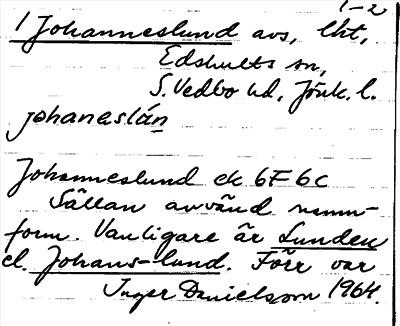 1-2
1 Johanneslund avs, lht,
Edshults sn,
S. Vedbo hd, Jönk. l.
johaneslán
Johanneslund ek 6F 6c
Sällan använd namn-
form. Vanligare är Lunden
el. Johans-lund. Förr var
Inger Danielsson 1964.